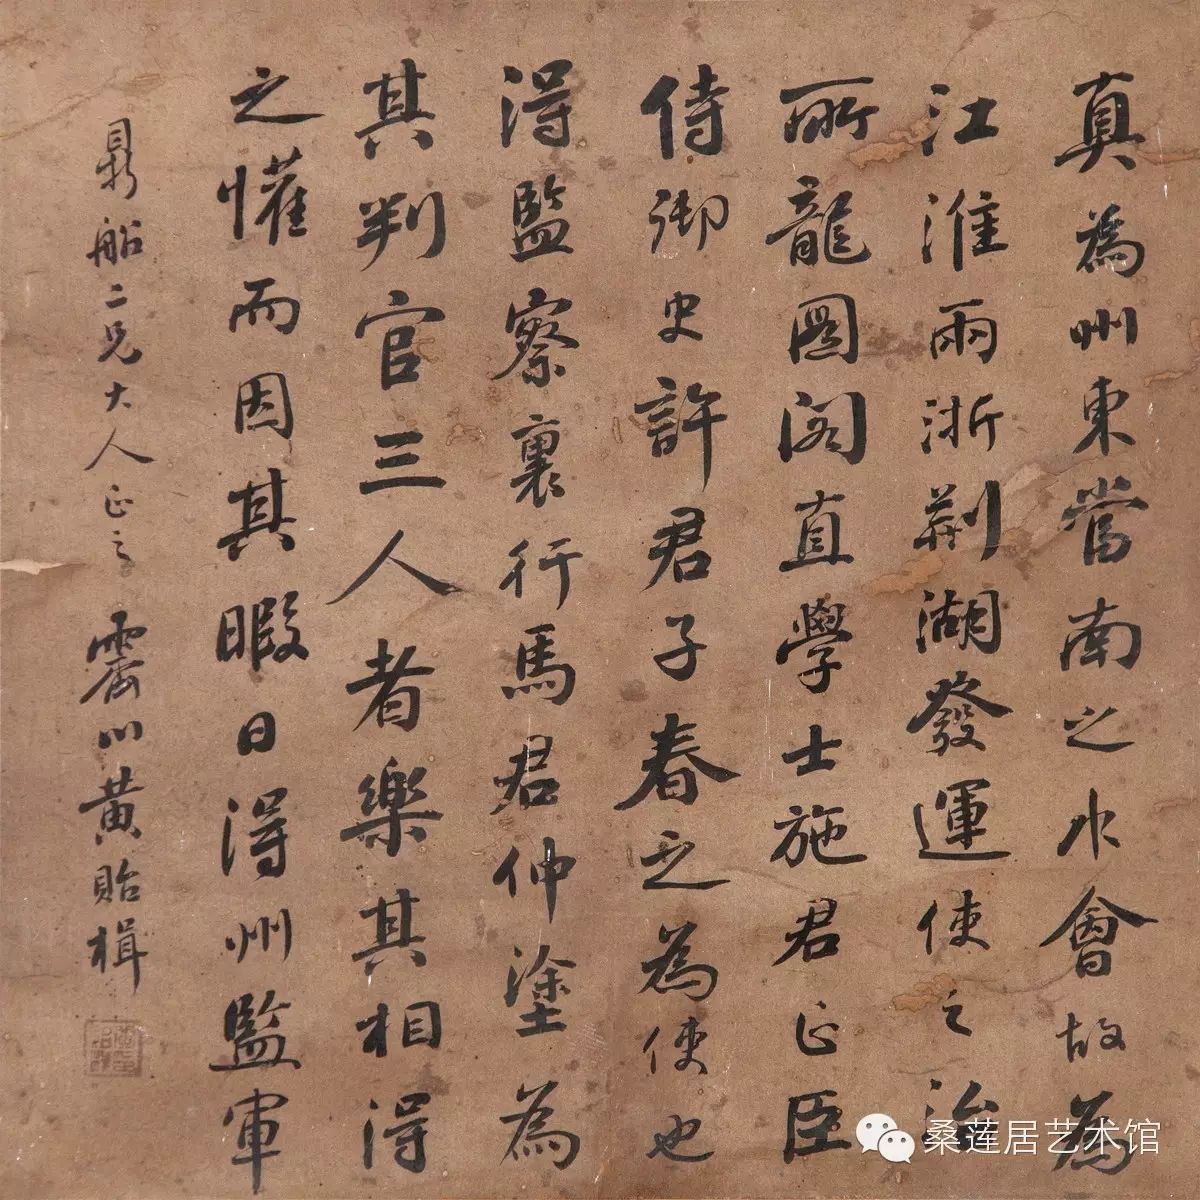 真為州東當南之水會故為
江淮兩浙荊湖發運使之治
所龍圖閣直學士施君正臣
侍御史許君子春之為使也
得監察裏行馬君仲塗為
其判官三人者樂其相得
之懽而因其暇日得州監軍
鼎船二兄大人正之 霽川黃貽楫
桑莲居艺术馆